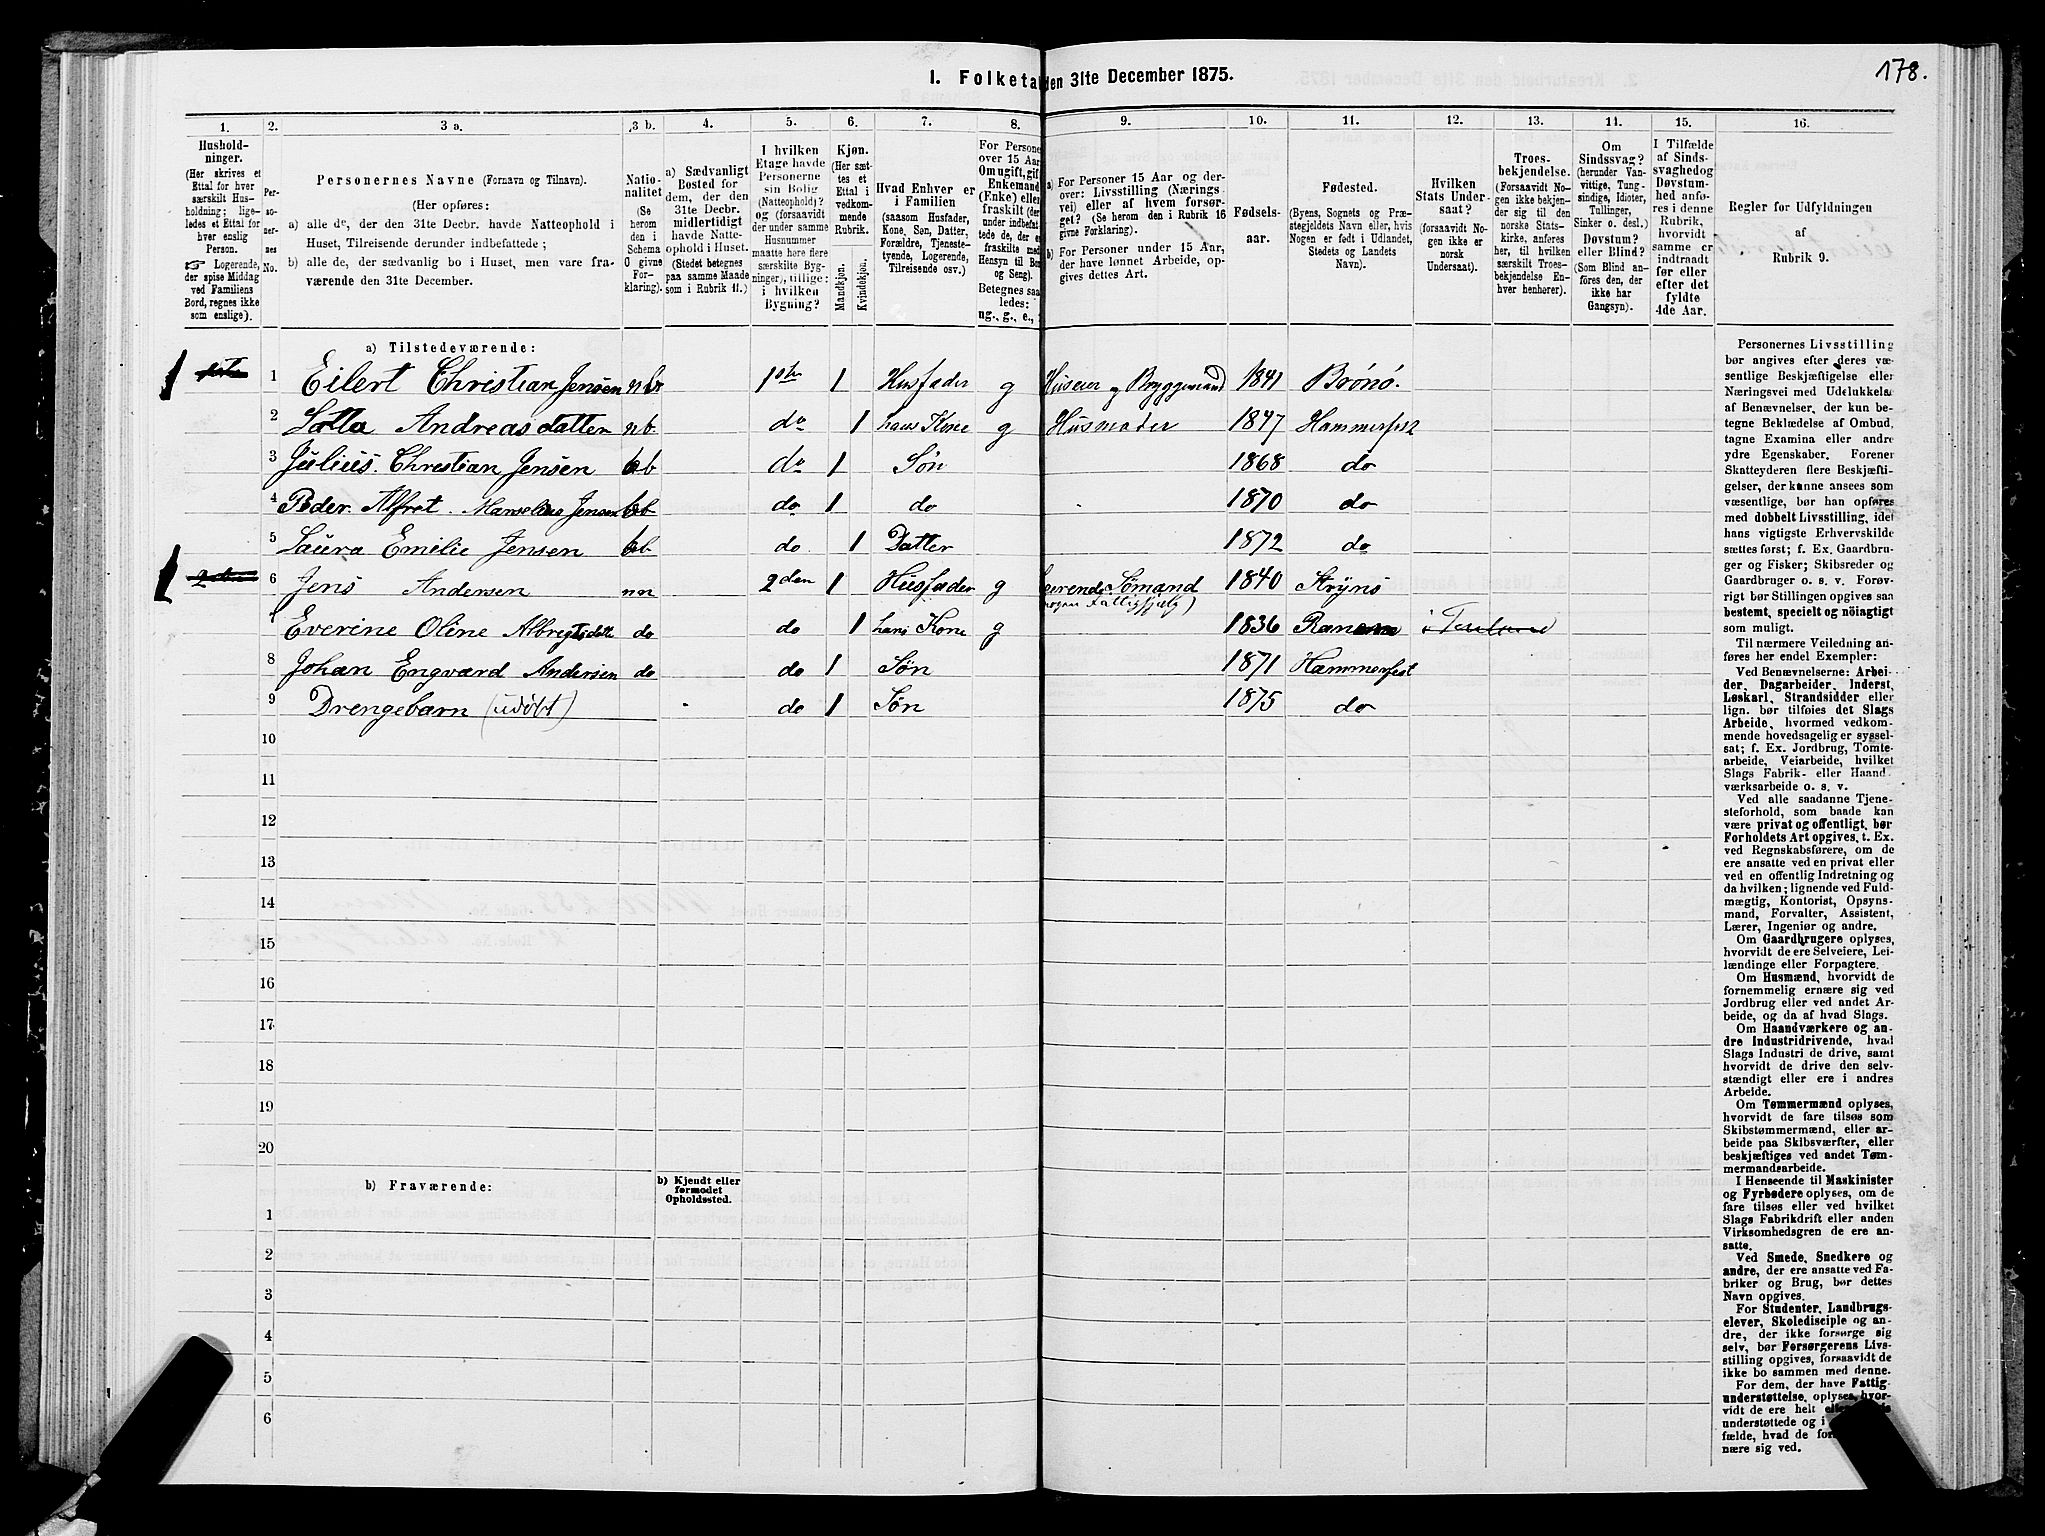 178.
I. Folketal den 31te December 1875.
1. 2. 3 a. 3 b. 4. 5. 6. 7. 8. 9. 10. 11. 12. 13. 11. 15. 16.
Hushold-
ninger.
(Her skrives et
Ettal for hver
særskilt Hus-
holdning; lige-
ledes et Ettal for
hver enslig
Person.
☞ Logerende,
der spise Middag
ved Familiens
Bord, regnes ikke
som enslige).
Per-
so-
ner-
nes
No.
Personernes Navne (Fornavn og Tilnavn).
(Her opføres:
a) alle de, der den 31te Decbr. havde Natteophold i
Huset, Tilreisende derunder indbefattede;
b) alle de, der sædvanlig bo i Huset, men vare fra-
værende den 31te December.
Natio-
nalitet
(Se
herom
den i
Schema
O givne
For-
klaring).
a) Sædvanligt
Bosted for
dem, der den
31te Decbr.
midlertidigt
havde Natte-
ophold i Huset.
(Stedet betegnes
paa samme Maade
som i Rubrik 11.)
I hvilken
Etage havde
Personerne
sin Bolig
(Natteophold)?
og (forsaavidt
der under samme
Husnummer
maatte høre flere
særskilte Byg-
ninger), tillige:
i hvilken
Bygning?
Kjøn.
(Her sæt-
tes et
Ettal i
vedkom-
mende
Rubrik.
Mandkjøn.
Kvindekjøn.
Hvad Enhver er
i Familien
(saasom Husfader,
Kone, Søn, Datter,
Forældre, Tjeneste-
tyende, Logerende,
Tilreisende osv.)
For Persone
over 15 Aar
Om ugift, gif
Enkemand
(Enke) elle
fraskilt (der
under indbefat-
tede de, der e
fraskilte med
Hensyn til Bo
og Seng).
Betegnes saa
ledes:
ug., g., e.,
a) For Personer 15 Aar og der-
over: Livsstilling (Nærings
vei) eller af hvem forsør-
get? (Se herom den i Rubrik 16
givne Forklaring).
b) For Personer under 15 Aar,
der have lønnet Arbeide, op-
gives dettes Art.
Fødsels-
aar.
Fødested.
(Byens, Sognets og Præ-
stegjeldets Navn eller, hvis
Nogen er født i Udlandet,
Stedets og Landets
Navn).
Hvilken
Stats Under-
saat?
(forsaavidt No-
gen ikke er
norsk
Undersaat).
Troes-
bekjendelse.
(Forsaavidt No-
gen ikke bekjen-
der sig til den
norske Stats-
kirke, anføres
her, til hvilken
særskilt Troes-
bekjendelse En-
hver henhører).
Om
Sindssvag?
(herunder Van-
vittige, Tung-
sindige, Idioter,
Tullinger,
Sinker o. desl.)
Døvstum?
eller Blind?
(Som Blind an-
føres den, der
ikke har
Gangsyn).
I Tilfælde
af Sinds-
svaghed og
Døvstum-
hed anfø-
res i denne
Rubrik,
hvorvidt
samme er
indtraadt
før eller
efter det
fyldte
4de Aar.
Regler før Udfyldningen
af
Rubrik 9.
a) Tilstedeværende:
1 Eilert Christian Jensen nb 1ste 1 Husfader g Huseier og Bryggemand 1841 Brønø.
2 Lotta Andreasdatter nb. do 1 hans Kone g Husmoder 1847 Hammerfest
3 Julius. Christian Jensen b do 1 Søn 1868 do
4 Peder. Alfret. Jensen b do 1 do 1870 do
5 Laura Emilie Jensen b do 1 Datter 1872 do
6 Jens Andersen nn 2den 1 Husfader g Sømand 1840 Stryns
Fattighjælp)
Everine Oline do do 1 hans Kone g 1836 Ranen
8 Johan Engvard Andersen do do 1 Søn 1871 Hammerfest
9 Drengebarn (udøbt) do 1 Søn 1875 do
10
11
12
13
14
15
16
17
18
19
20
b) Fraværende:
b) Kjendt eller
formodet
Opholdssted.
1
2
3
4
5
6
Personernes Livsstilling
bør angives efter deres væ-
sentlige Beskjæftigelse eller
Næringsvei med Udelukkelse
af Benævnelser, der kun be-
tegne Beklædelse af Ombud,
tagne Examina eller andre
ydre Egenskaber. Forener
Skatteyderen flere Beskjæfti-
gelser, der kunne ansees som
væsentlige, bør han opføres
med dobbelt Livsstilling, idet
hans vigtigste Erhvervskilde
sættes først; f. Ex. Gaardbru-
ger og Fisker; Skibsreder og
Gaardbruger o. s. v. Forøv-
rigt bør Stillingen opgives saa
bestemt, specielt og nøiagtigt
som muligt.
Til nærmere Veiledning an-
føres her endel Exempler:
Ved Benævnelserne: Arbei-
der, Dagarbeider, Inderst,
Løskarl, Strandsidder eller
lign. bør tilføies det Slags
Arbeide, hvormed vedkom-
mende hovedsagelig er syssel-
sat; f. Ex. Jordbrug, Tomte-
arbeide, Veiarbeide, hvilket
Slags Fabrik- eller Haand-
værksarbeide o. s. v.
Ved alle saadanne Tjene-
steforhold, som baade kan
være privat og offentligt, bør
Forholdets Art opgives, t. Ex.
ved Regnskabsførere, om de
ere ansatte ved en privat eller
ved en offentlig Indretning og
da hvilken; lignende ved Fuld-
mægtig, Kontorist, Opsyns-
mand, Forvalter, Assistent,
Lærer, Ingeniør og andre.
Om Gaardbrugere oplyses,
hvorvidt de ere Selveiere, Lei-
lændinge eller Forpagtere.
Om Husmænd, hvorvidt de
fornemmelig ernære sig ved
Jordbrug eller ved andet Ar-
beide, og da af hvad Slags.
Om Haandværkere og an-
dre Industridrivende, hvad
Slags Industri de drive, samt
hvorvidt de drive den selv-
stændigt eller ere i andres
Arbeide.
Om Tømmermænd oplyses,
hvorvidt de fare tilsøs som
Skibstømmermænd, eller ar-
beide paa Skibsværfter, eller
beskjæftiges ved andet Tøm-
mermandsarbeide.
I Henseende til Maskinister
og Fyrbødere oplyses, om de
fare tilsøs eller ved hvilket
Slags Fabrikdrift eller anden
Virksomhedsgren de ere an-
satte.
Ved Smede, Snedkere og
andre, der ere ansatte ved Fa-
briker og Brug, bør dettes
Navn opgives.
For Studenter, Landbrugs-
elever, Skoledisciple og an-
dre, der ikke forsørge sig
selv, bør Forsørgerens Livs-
stilling opgives, forsaavidt de
ikke bo sammen med denne.
For dem, der have Fattig-
understøttelse, oplyses, hvor-
vidt de ere helt
understøttede og i
fælde, hvad de for
nære sig ved.